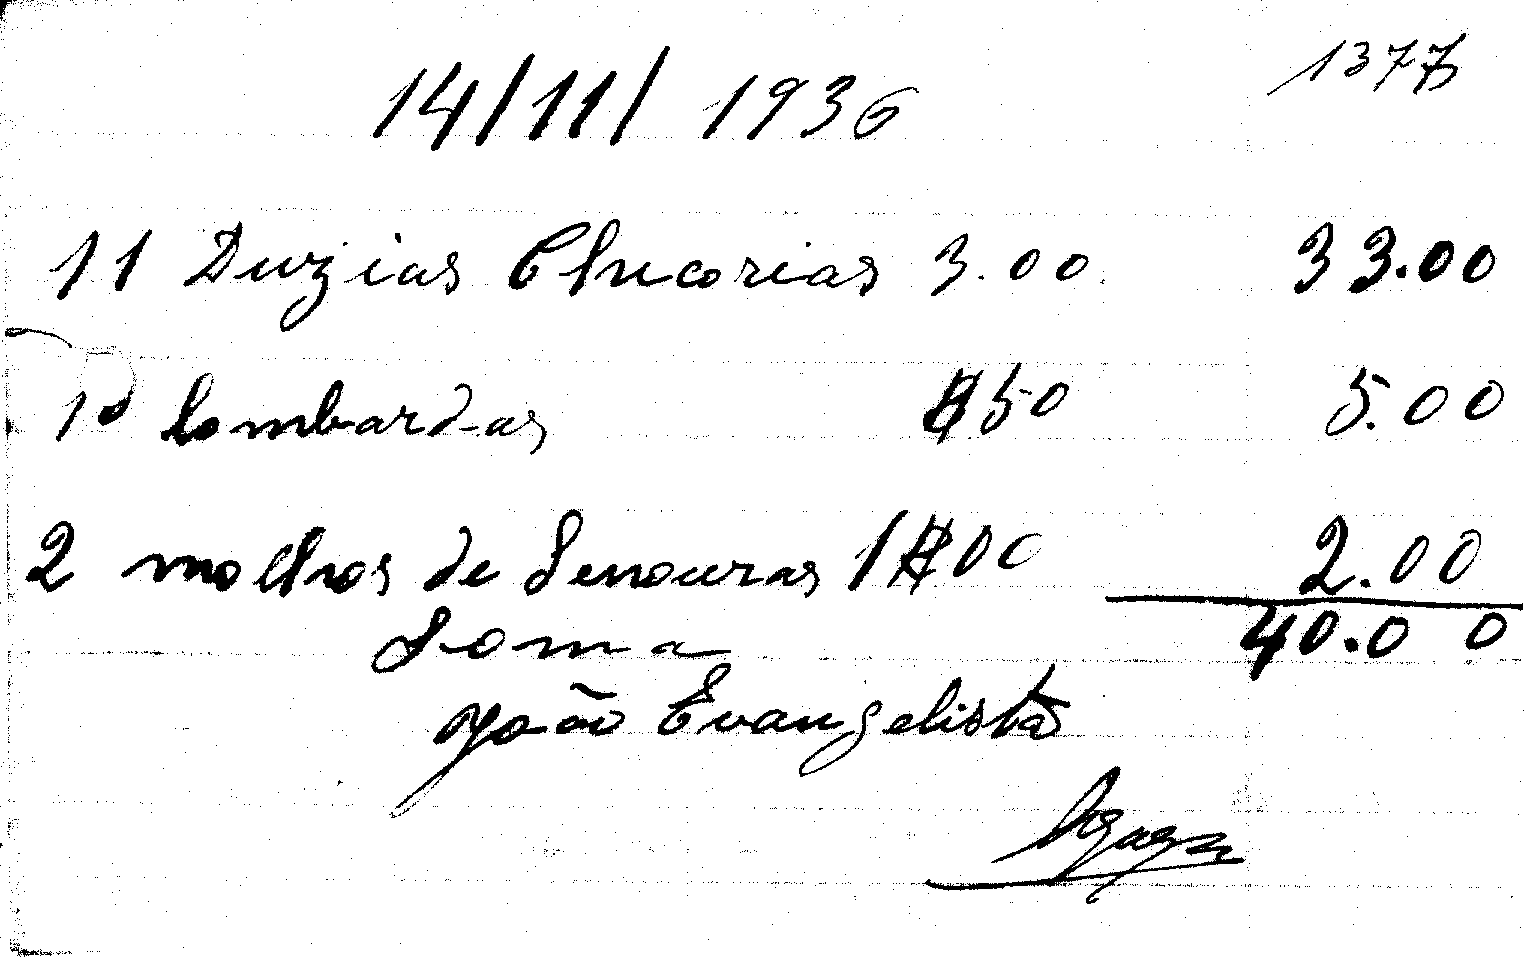 1377
14/11/1936
11 Duzias Chicorias 3.00 33.00
10 lombardas $50 5.00
2 molhos de Senouras 1$00 2.00
Soma 40.00
João Evangelista